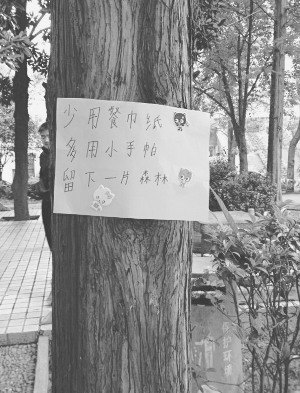 少用餐巾纸
多用小手帕
留下一片森林
护环境